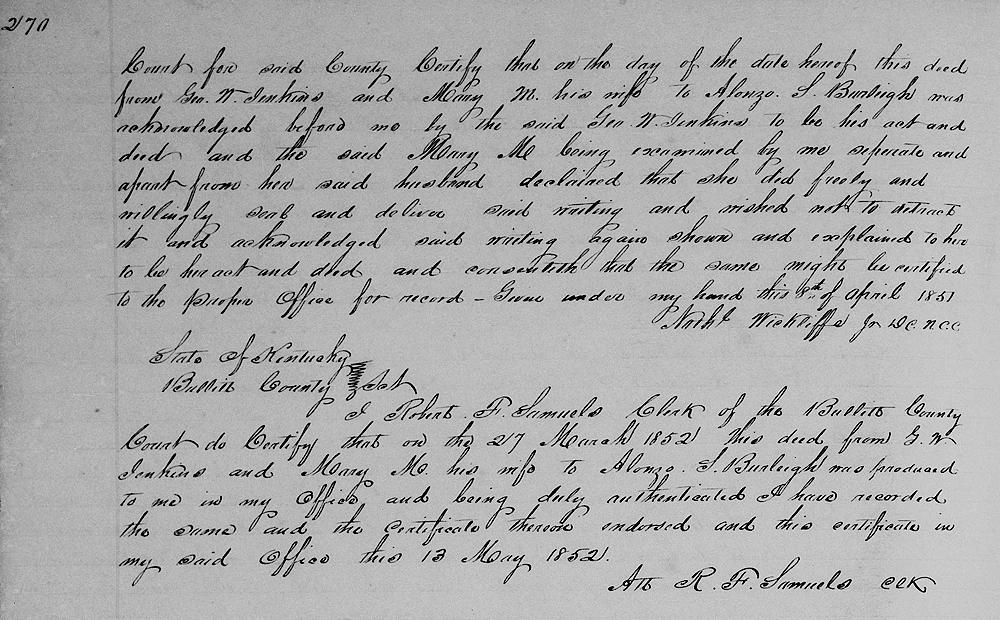 270
Court for said County Certify that on the day of the date hereof this deed
from Geo. W. Jenkins and Mary M. his wife to Alonzo. S. Burleigh was
acknowledged before me by the said Geo. W. Jenkins to be his act and
deed and the said Mary M being examined by me seperate and
apart from her said husband declaired that she did freely and
willingly seal and deliver said writing and wished not to retract
it and acknowledged said writing again shown and explained to her
to be her act and deed and consenteth that the same might be certified
to the proper Office for record - Given under my hand this 8th of April 1851
Nathl Wickliffe Jr D.C. N.C.C.
State of Kentucky
Bullitt County Sct
I Robert. F. Samuels Clerk of the Bullitt County
Court do Certify that on the 27 March 1852 This deed from G. W
Jenkins and Mary M. his wife to Alonzo. S. Burleigh was produced
to me in my Office and being duly authenticated I have recorded
the same and the Certificate thereon endorsed and this certificate in
my said Office this 13 May 1852.
Att R. F. Samuels CLK